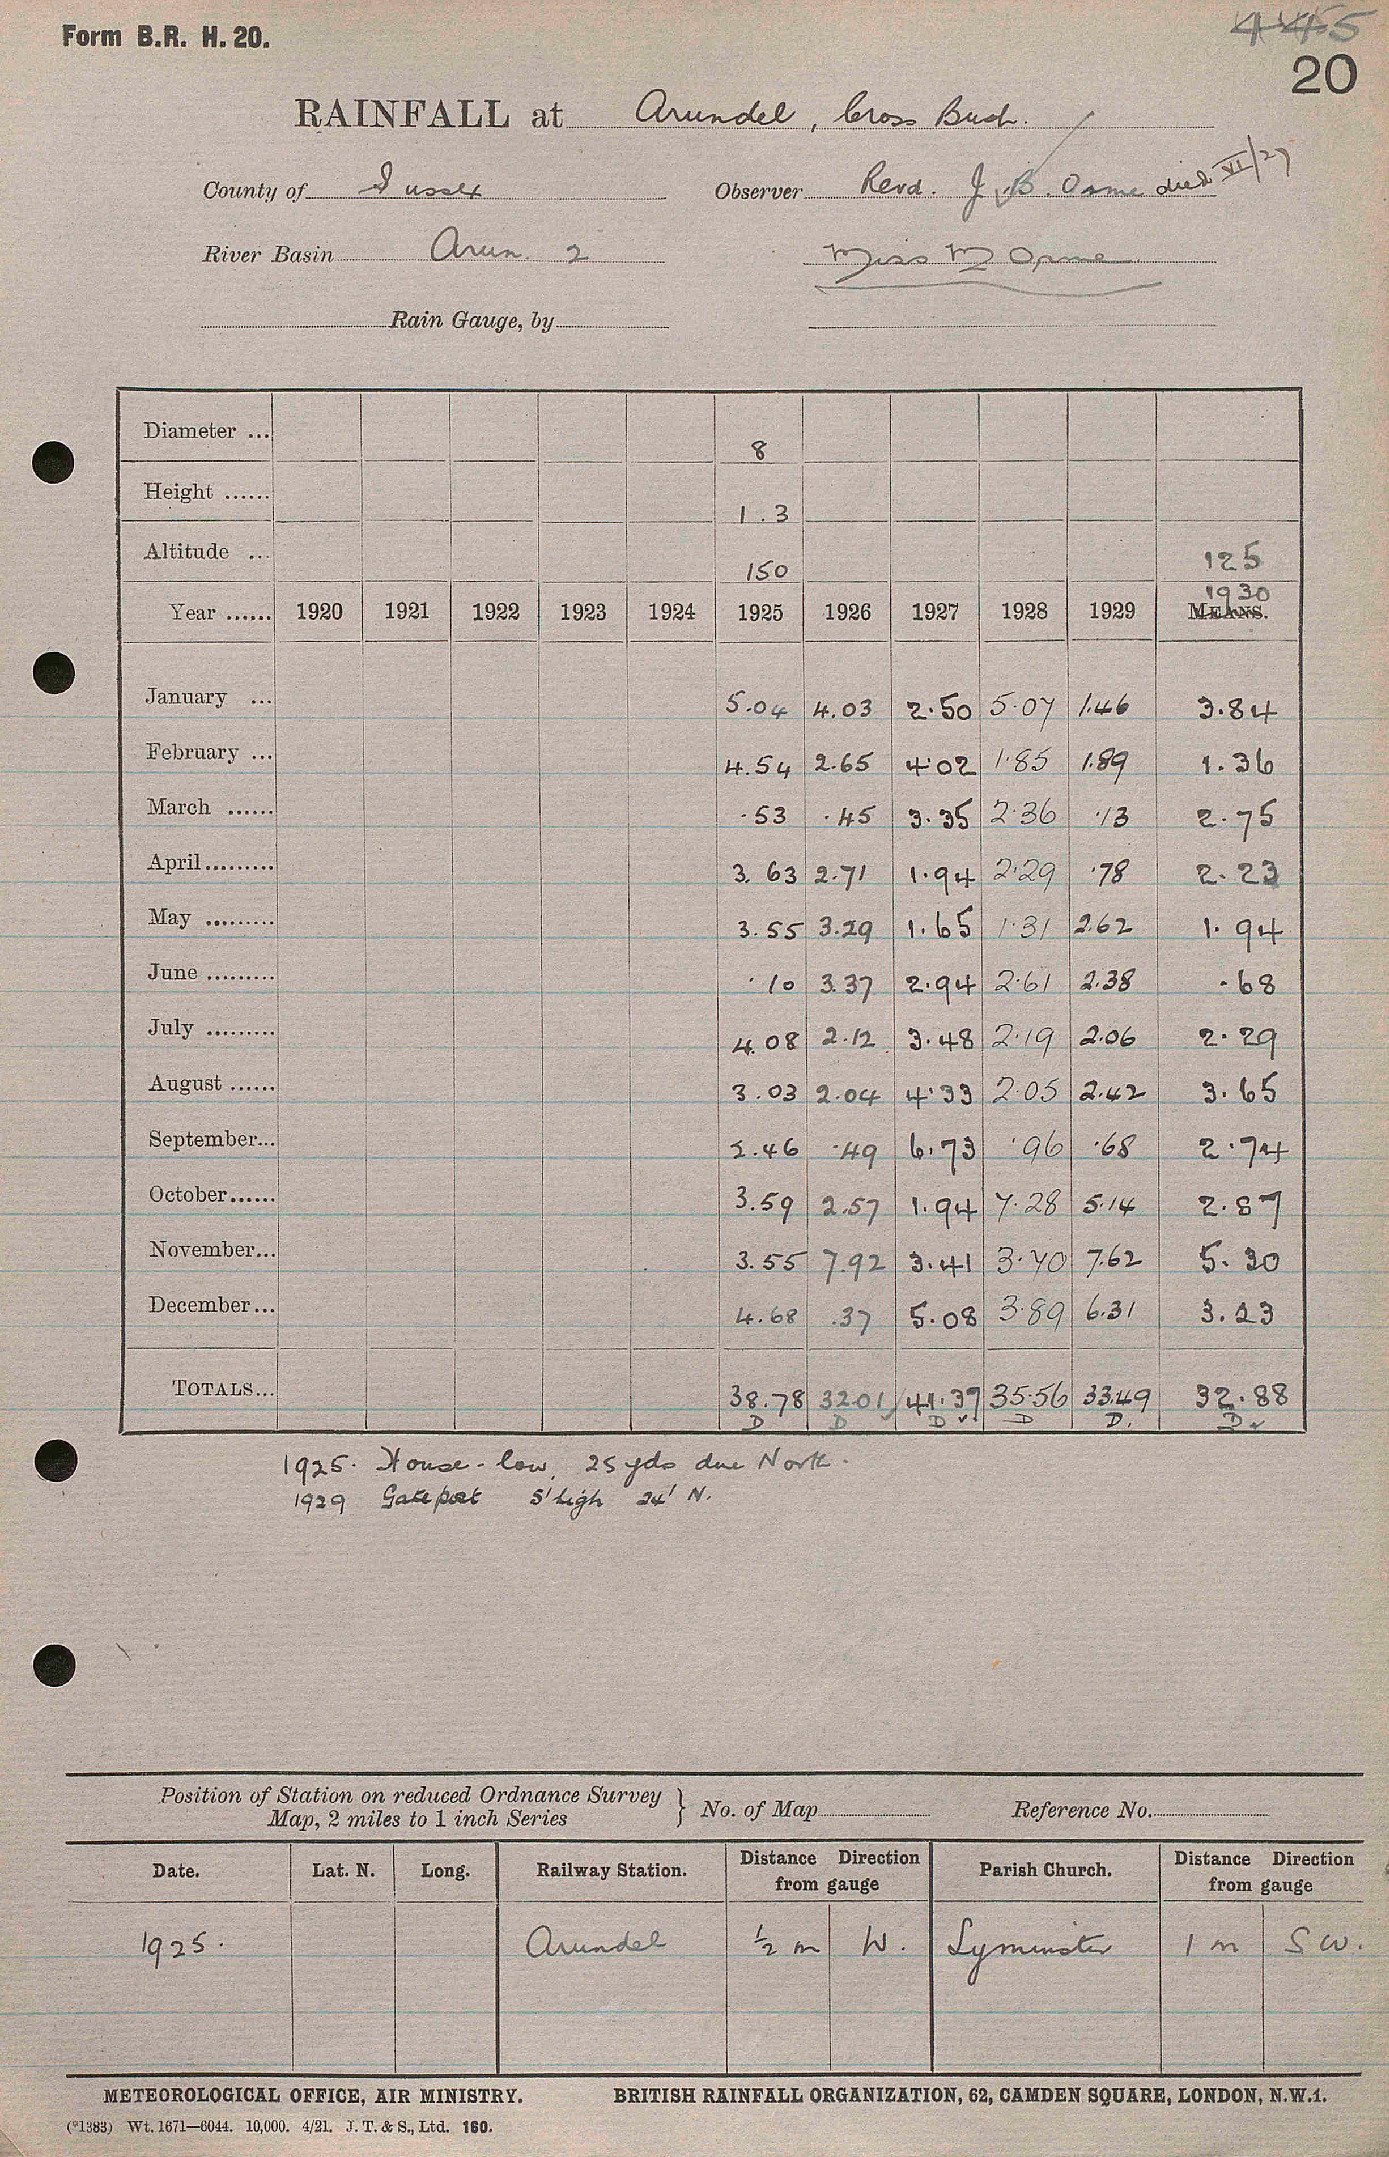 Form B.R. H. 20.
445
20
RAINFALL at Arundel, Cross Bush.
County of Sussex Observer Revd. J. B. Orme died VI/27
River Basin Arun. 2 Miss M Orme
Rain Gauge, by
Diameter ... 8
Height ...... 1.3
Altitude ... 150 125
1930
Year ...... 1920 1921 1922 1923 1924 1925 1926 1927 1928 1929 MEANS.
January ... 5.04 4.03 2.50 5.07 1.46 3.84
February ... 4.54 2.65 4.02 1.85 1.89 1.36
March ...... .53 .45 3.35 2.36 .13 2.75
April ......... 3.63 2.71 1.94 2.29 .78 2.23
May ......... 3.55 3.29 1.65 1.31 2.62 1.94
June ......... .10 3.37 2.94 2.61 2.38 .68
July ......... 4.08 2.12 3.48 2.19 2.06 2.29
August ...... 3.03 2.04 4.33 2.05 2.42 3.65
September... 2.46 .49 6.73 .96 .68 2.74
October...... 3.59 2.57 1.94 7.28 5.14 2.87
November... 3.55 7.92 3.41 3.70 7.62 5.30
December... 4.68 .37 5.08 3.89 6.31 3.23
TOTALS... 38.78 32.01 41.37 35.56 33.49 32.88
D D D D D. D
1925. House - low, 25 yds due North.
1929 Gatepost 5' high 24' N.
Position of Station on reduced Ordnance Survey
Map, 2 miles to 1 inch Series } No. of Map Reference No.
Date. Lat. N. Long. Railway Station. Distance Direction from gauge Parish Church. Distance Direction from gauge
1925. Arundel ½ m W. Lyminster 1 m SW.
METEOROLOGICAL OFFICE, AIR MINISTRY. BRITISH RAINFALL ORGANIZATION, 62, CAMDEN SQUARE, LONDON, N.W.1.
(*1383) Wt. 1671—6044. 10,000. 4/21. J. T. & S., Ltd. 160.